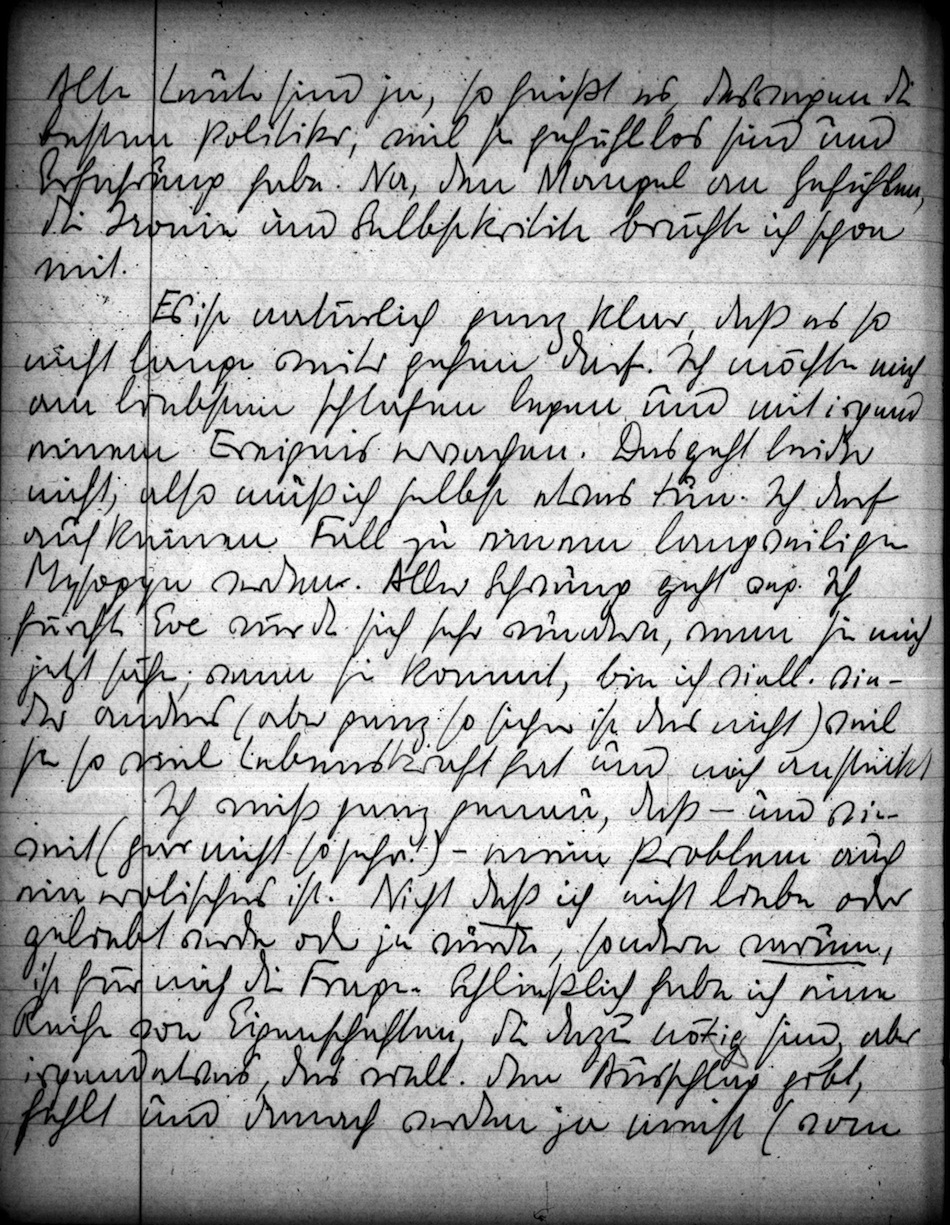 Alte Leute sind ja, so heißt es, deswegen die
besten Politiker, weil sie gefühllos sind und
Erfahrung haben. Na, den Mangel an Gefühlen,
die Ironie und Selbstkritik brächte ich schon
mit.
Es ist natürlich ganz klar, daß es so
nicht lange weiter gehen darf. Ich möchte mich
am liebsten schlafen legen und mit irgend
einem Ereignis erwachen. Das geht leider
nicht, also muß ich selbst etwas tun. Ich darf
auf keinen Fall zu einem langweiligen
Mysogyn werden. Aller Schwung geht weg. Ich
fürchte Eve würde sich sehr wundern, wenn sie mich
jetzt sähe; wenn sie kommt, bin ich viell. wie-
der anders (aber ganz so sicher ist das nicht) weil
sie so viel Lebenskraft hat und mich ansteckt
Ich weiß ganz genau, daß – und wie-
weit (gar nicht so sehr!) – mein Problem auch
ein erotisches ist. Nicht daß ich nicht liebe oder
geliebt werde oder je würde, sondern warum,
ist für mich die Frage. Schließlich habe ich eine
Reihe von Eigenschaften, die dazu nötig sind, aber
irgendetwas, das viell. den Ausschlag gibt,
fehlt und danach werden ja meist (vom